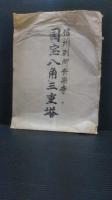 信州別所安楽寺
国宝八角三重塔